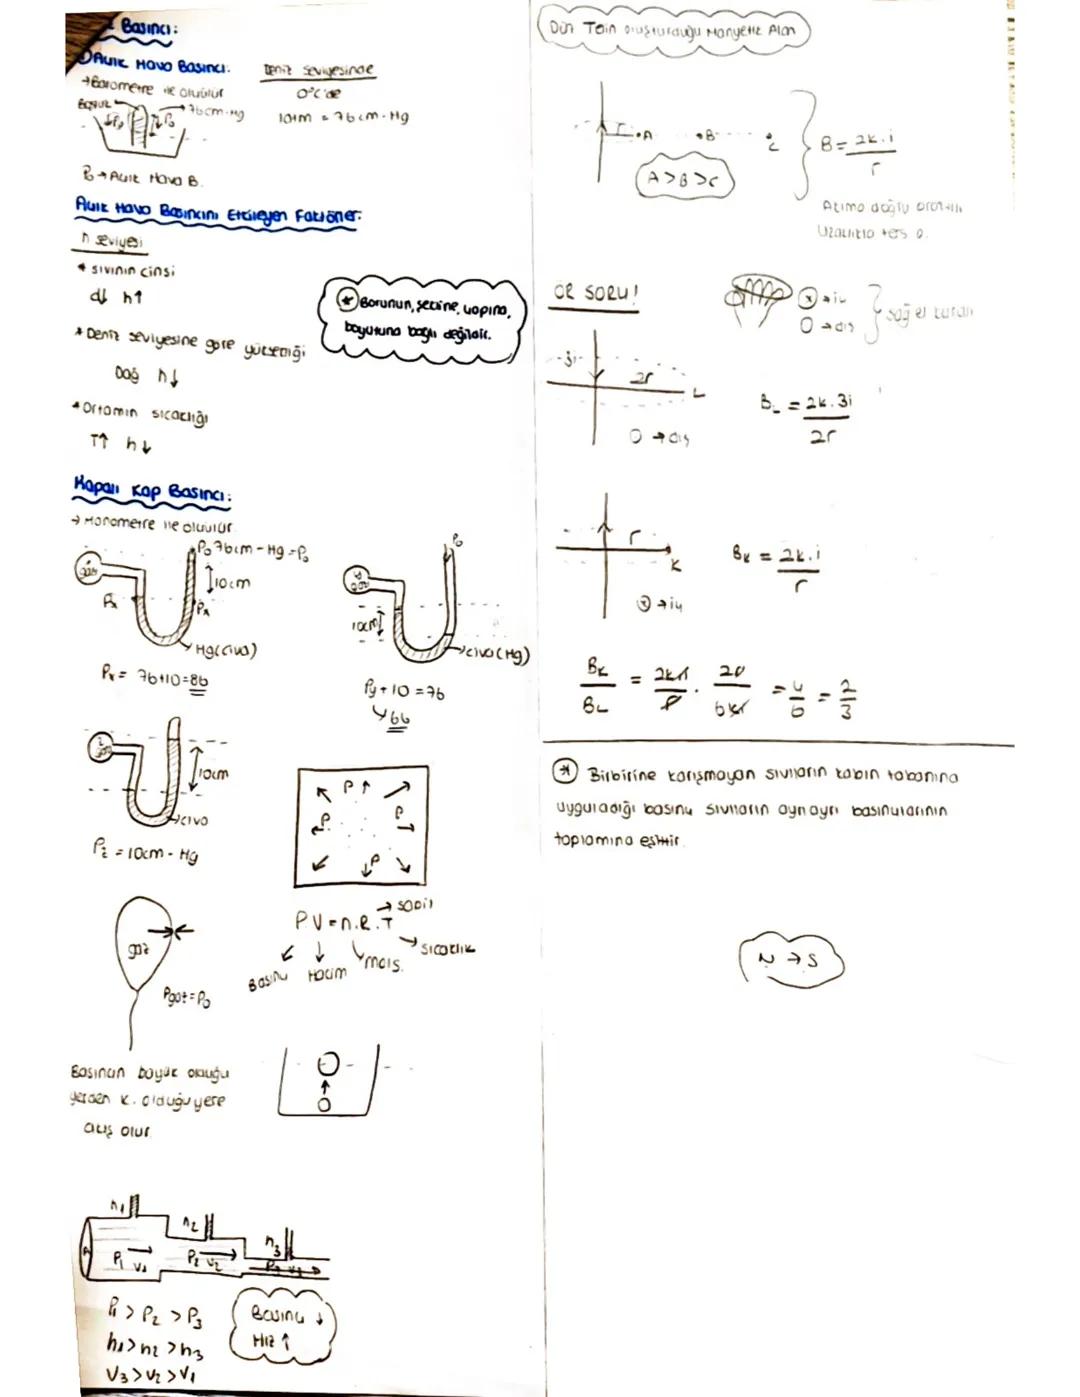 Basıncı:
Açık Hava Basıncı:
→Barometre ile ölçülür
Deniz seviyesinde
0°C'de
1atm = 76cm-Hg
Boşluk
76cm-Hg
P₀
P₀
P₀→Açık Hava B.
Açık Hava Basıncını Etkileyen Faktörler:
h seviyesi
* sıvının cinsi
d↓ h↑
* Deniz seviyesine göre yüksekliği
Dağ h↓
* Ortamın sıcaklığı
T↑ h↓
* Borunun, şekline, yapına,
boyutuna bağlı değildir.
Kapalı Kap Basıncı:
→ Manometre ile ölçülür.
P₀ 76cm-Hg = P₀
gaz
10cm
Px
Px
Hg(civa)
Px = 76+10=86
P₀
y
gaz
10cm
civa(Hg)
Py+10=76
66
z
gaz
10cm
civa
Pz = 10cm-Hg
P
P
P
P
PV=n.R.T
→ sabit
Basınç
Hacim
mol s.
sıcaklık
gaz
Pgaz=P₀
Basıncın büyük olduğu
yerden k. olduğu yere
akış olur.
h1
h2
h3
A
P1 V1
P2 V2
P3 V3
P1 > P2 > P3
h1>h2>h3
V3>V2>V1
Basınç ↓
Hız ↑
Düz Telin oluşturduğu Manyetik Alan
r
A
B
C
A>B>C
B = 2k.i
r
Akımla doğru orantılı
Uzaklıkla ters o.
ÖR SORU!
ⓧ→iç
O→dış
sağ el kuralı
3i
2r
L
O→dış
B_L = 2k.3i
2r
r
K
ⓧ→iç
B_K = 2k.i
r
B_K/B_L = 2ki/r . 2r/6ki = 4/6 = 2/3
* Birbirine karışmayan sıvıların kabın tabanına
uyguladığı basınç sıvıların ayrı ayrı basınçlarının
toplamına eşittir.
N→S